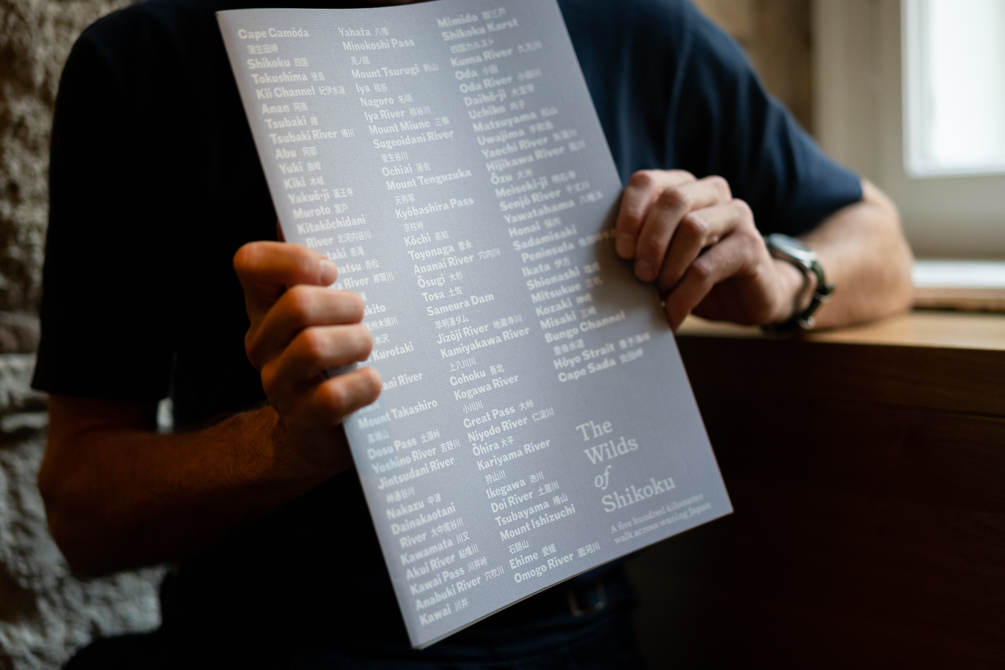 Cape Camôda
蒲生田岬
Shikoku 四国
Tokushima 徳島
Kii Channel 紀伊水道
Anan 阿南
Tsubaki 椿
Tsubaki River 椿川
Abu 阿部
Yuki 由岐
Kiki 木岐
Yakuō-ji 薬王寺
Muroto 室戸
Kitakōchidani
River 北河内谷川
Kurotaki
Mount Takashiro
高城山
Dosu Pass 土須峠
Yoshino River 吉野川
Jintsudani River
神通谷川
Nakazu 中津
Dainakaotani
River 大中尾谷川
Kawamata 川又
Akui River 鮎喰川
Kawai Pass 川井峠
Anabuki River 穴吹川
Kawai 川井
Yahata 八幡
Minokoshi Pass
見ノ越
Mount Tsurugi 剣山
Iya 祖谷
Nagoro 名頃
Iya River 祖谷川
Mount Miune 三嶺
Sugeoidani River
菅生谷川
Ochiai 落合
Mount Tenguzuka
天狗塚
Kyōbashira Pass
京柱峠
Kōchi 高知
Toyonaga 豊永
Ananai River 穴内川
Ōsugi 大杉
Tosa 土佐
Sameura Dam
早明浦ダム
Jizōji River 地蔵寺川
Kamiyakawa River
上八川川
Gohoku 吾北
Kogawa River
小川川
Great Pass 大峠
Niyodo River 仁淀川
Ōhira 大平
Kariyama River
狩山川
Ikegawa 池川
Doi River 土居川
Tsubayama 椿山
Mount Ishizuchi
石鎚山
Ehime 愛媛
Omogo River 面河川
Mimido
Shikoku Karst
四国カルスト
Kuma River 久万川
Oda 小田
Oda River 小田川
Daihō-ji 大宝寺
Uchiko 内子
Matsuyama 松山
Uwajima 宇和島
Yaochi River
Hijikawa River 肱川
Ōzu 大洲
Meiseki-ji 明石寺
Senjō River 千丈川
Yawatahama 八幡浜
Honai 保内
Sadamisaki
Peninsula
Ikata 伊方
Shionashi
Mitsukue 三机
Kozaki
Misaki 三崎
Bungo Channel
豊後水道
Hōyo Strait
Cape Sada
The
Wilds
of
Shikoku
A five hundred kilometre
walk across waning Japan